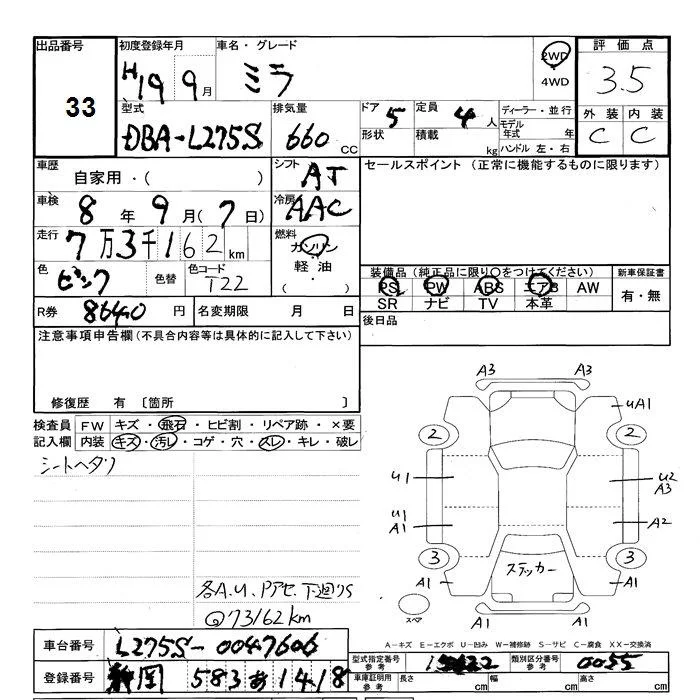 出品番号 初度登録年月 車名・グレード 2WD 評価点
33 H19 9月 ミラ 4WD 3.5
型式 排気量 ドア 5 定員 4人 ディーラー・並行 外装 内装
DBA-L275S 660cc 形状 積載 kg モデル年式 年 C C
ハンドル 左・右
車歴 シフト セールスポイント (正常に機能するものに限ります)
自家用・( ) AT
車検 8年9月(7日) 冷房 AAC
走行 7万3千162km 燃料 ガソリン
色 ピンク 色替 色コード T22 軽油
・( )
装備品(純正品に限り○をつけてください) 新車保証書
PS PW ABS エアB AW 有・無
SR ナビ TV 本革
R券 8640円 名変期限 月 日 後日品
注意事項申告欄(不具合内容等は具体的に記入して下さい)
修復歴 有 〔箇所 〕
検査員 FW キズ・飛石・ヒビ割・リペア跡・×要
記入欄 内装 キズ・汚レ・コゲ・穴・スレ・キレ・破レ
シートヘタリ
A3 A3
uA1
2 2
u1 u2
A3
u1
A1 A2
3 3
ステッカー
A1 A1
スペア
A1 A1
各A.U、Pアセ、下廻りS
@73162km
A-キズ E-エクボ U-凹み W-補修跡 S-サビ C-腐食 XX-交換済
車台番号 L275S-0047606
型式指定番号 参考 類別区分番号 参考 0055
登録番号 静岡 583 あ 1418
車庫証明用 参考 長さ cm 幅 cm 高さ cm